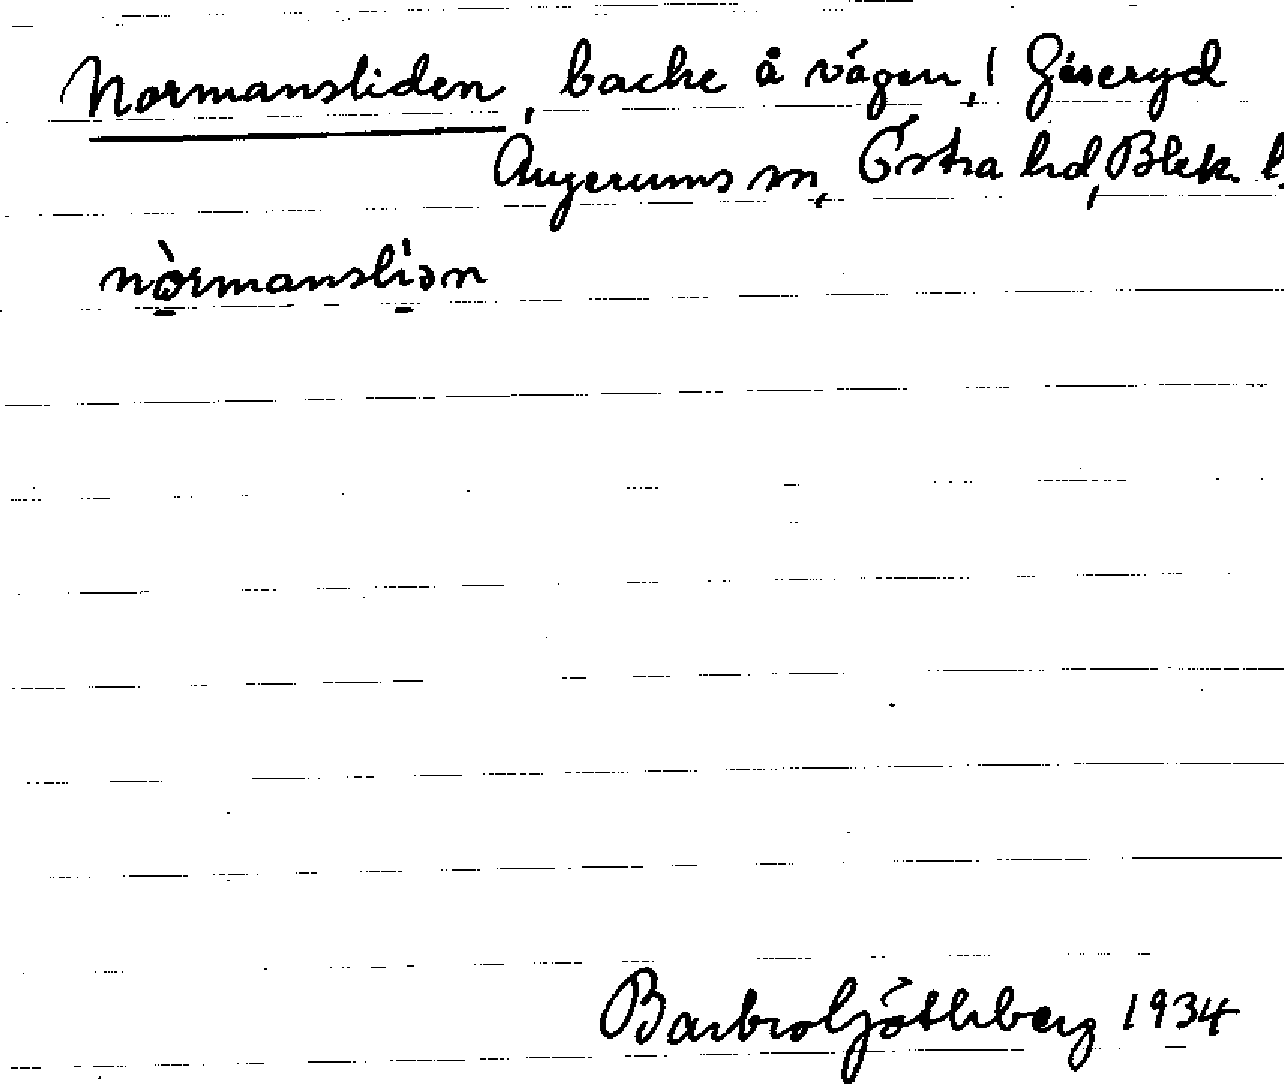 Normansliden, backe å vägen, 1 Göseryd
Augerums sn, Östra hd, Blek. l.
nòrmanslìən
Barbro Göthberg 1934